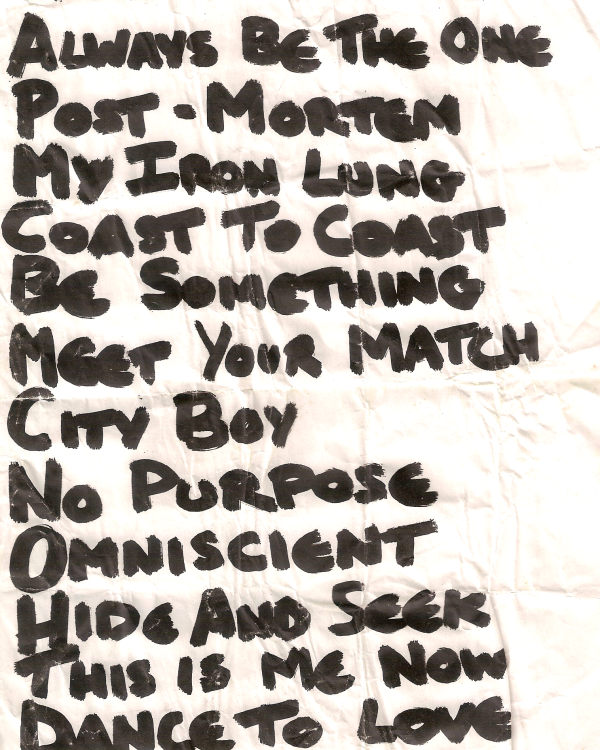 Always Be The One
Post-Mortem
My Iron Lung
Coast To Coast
Be Something
Meet Your Match
City Boy
No Purpose
Omniscient
Hide And Seek
This Is Me Now
Dance To Love